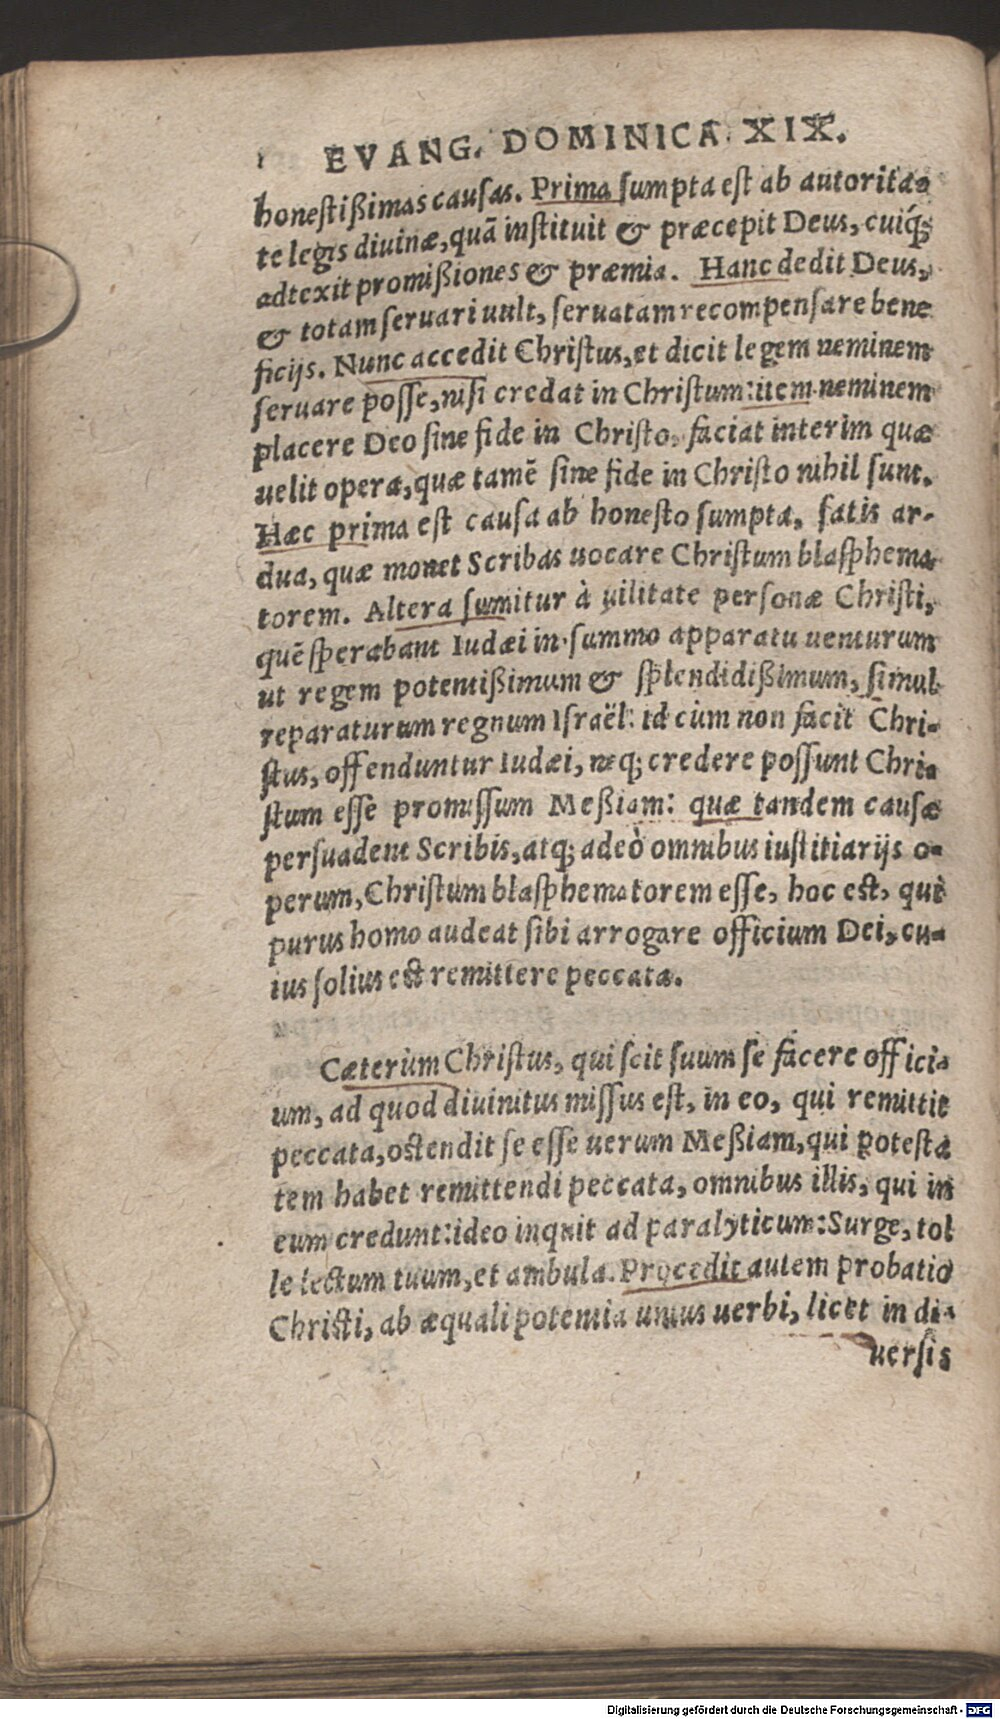 EVANG. DOMINICA XIX.
honestißimas causas. Prima sumpta est ab autorita-
te legis diuinæ, quā instituit & præcepit Deus, cuiq́;
adtexit promißiones & præmia. Hanc dedit Deus,
& totam seruari uult, seruatam recompensare bene
ficijs. Nunc accedit Christus, et dicit legem neminem
seruare posse, nisi credat in Christum: item neminem
placere Deo sine fide in Christo, faciat interim quæ
uelit opera, quæ tamē sine fide in Christo nihil sunt.
Hæc prima est causa ab honesto sumpta, satis ar-
dua, quæ monet Scribas uocare Christum blasphema
torem. Altera sumitur à uilitate personæ Christi,
quē sperabant Iudæi in summo apparatu uenturum
ut regem potentißimum & splendidißimum, simul
reparaturum regnum Israël: id cùm non facit Chri-
stus, offenduntur Iudæi, neq; credere possunt Chri-
stum esse promissum Meßiam: quæ tandem causæ
persuadent Scribis, atq; adeò omnibus iustitiarijs o-
perum, Christum blasphematorem esse, hoc est, qui
purus homo audeat sibi arrogare officium Dei, cu-
ius solius est remittere peccata.
Cæterùm Christus, qui scit suum se facere offici-
um, ad quod diuinitus missus est, in eo, qui remittit
peccata, ostendit se esse uerum Meßiam, qui potesta
tem habet remittendi peccata, omnibus illis, qui in
eum credunt: ideo inquit ad paralyticum: Surge, tol
le lectum tuum, et ambula. Procedit autem probatio
Christi, ab æquali potentia unius uerbi, licet in di-
uersis
Digitalisierung gefördert durch die Deutsche Forschungsgemeinschaft - DFG